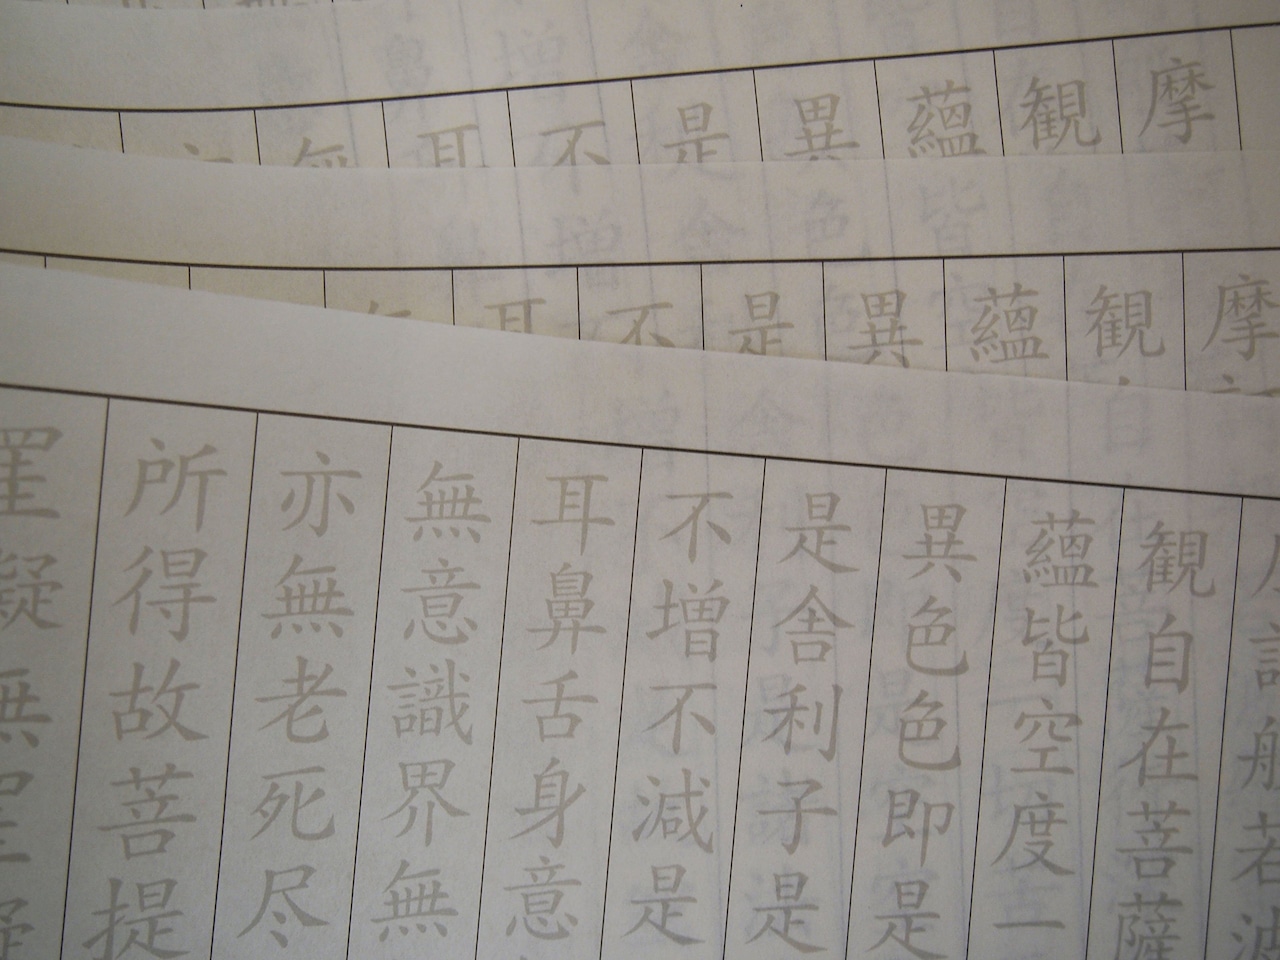 摩
観
蘊
異
是
不
耳
無
摩
観
蘊
異
是
不
耳
観自在菩薩
蘊皆空度一
異色色即是
是舎利子是
不増不減是
耳鼻舌身意
無意識界無
亦無老死尽
所得故菩提
罣礙無罣礙